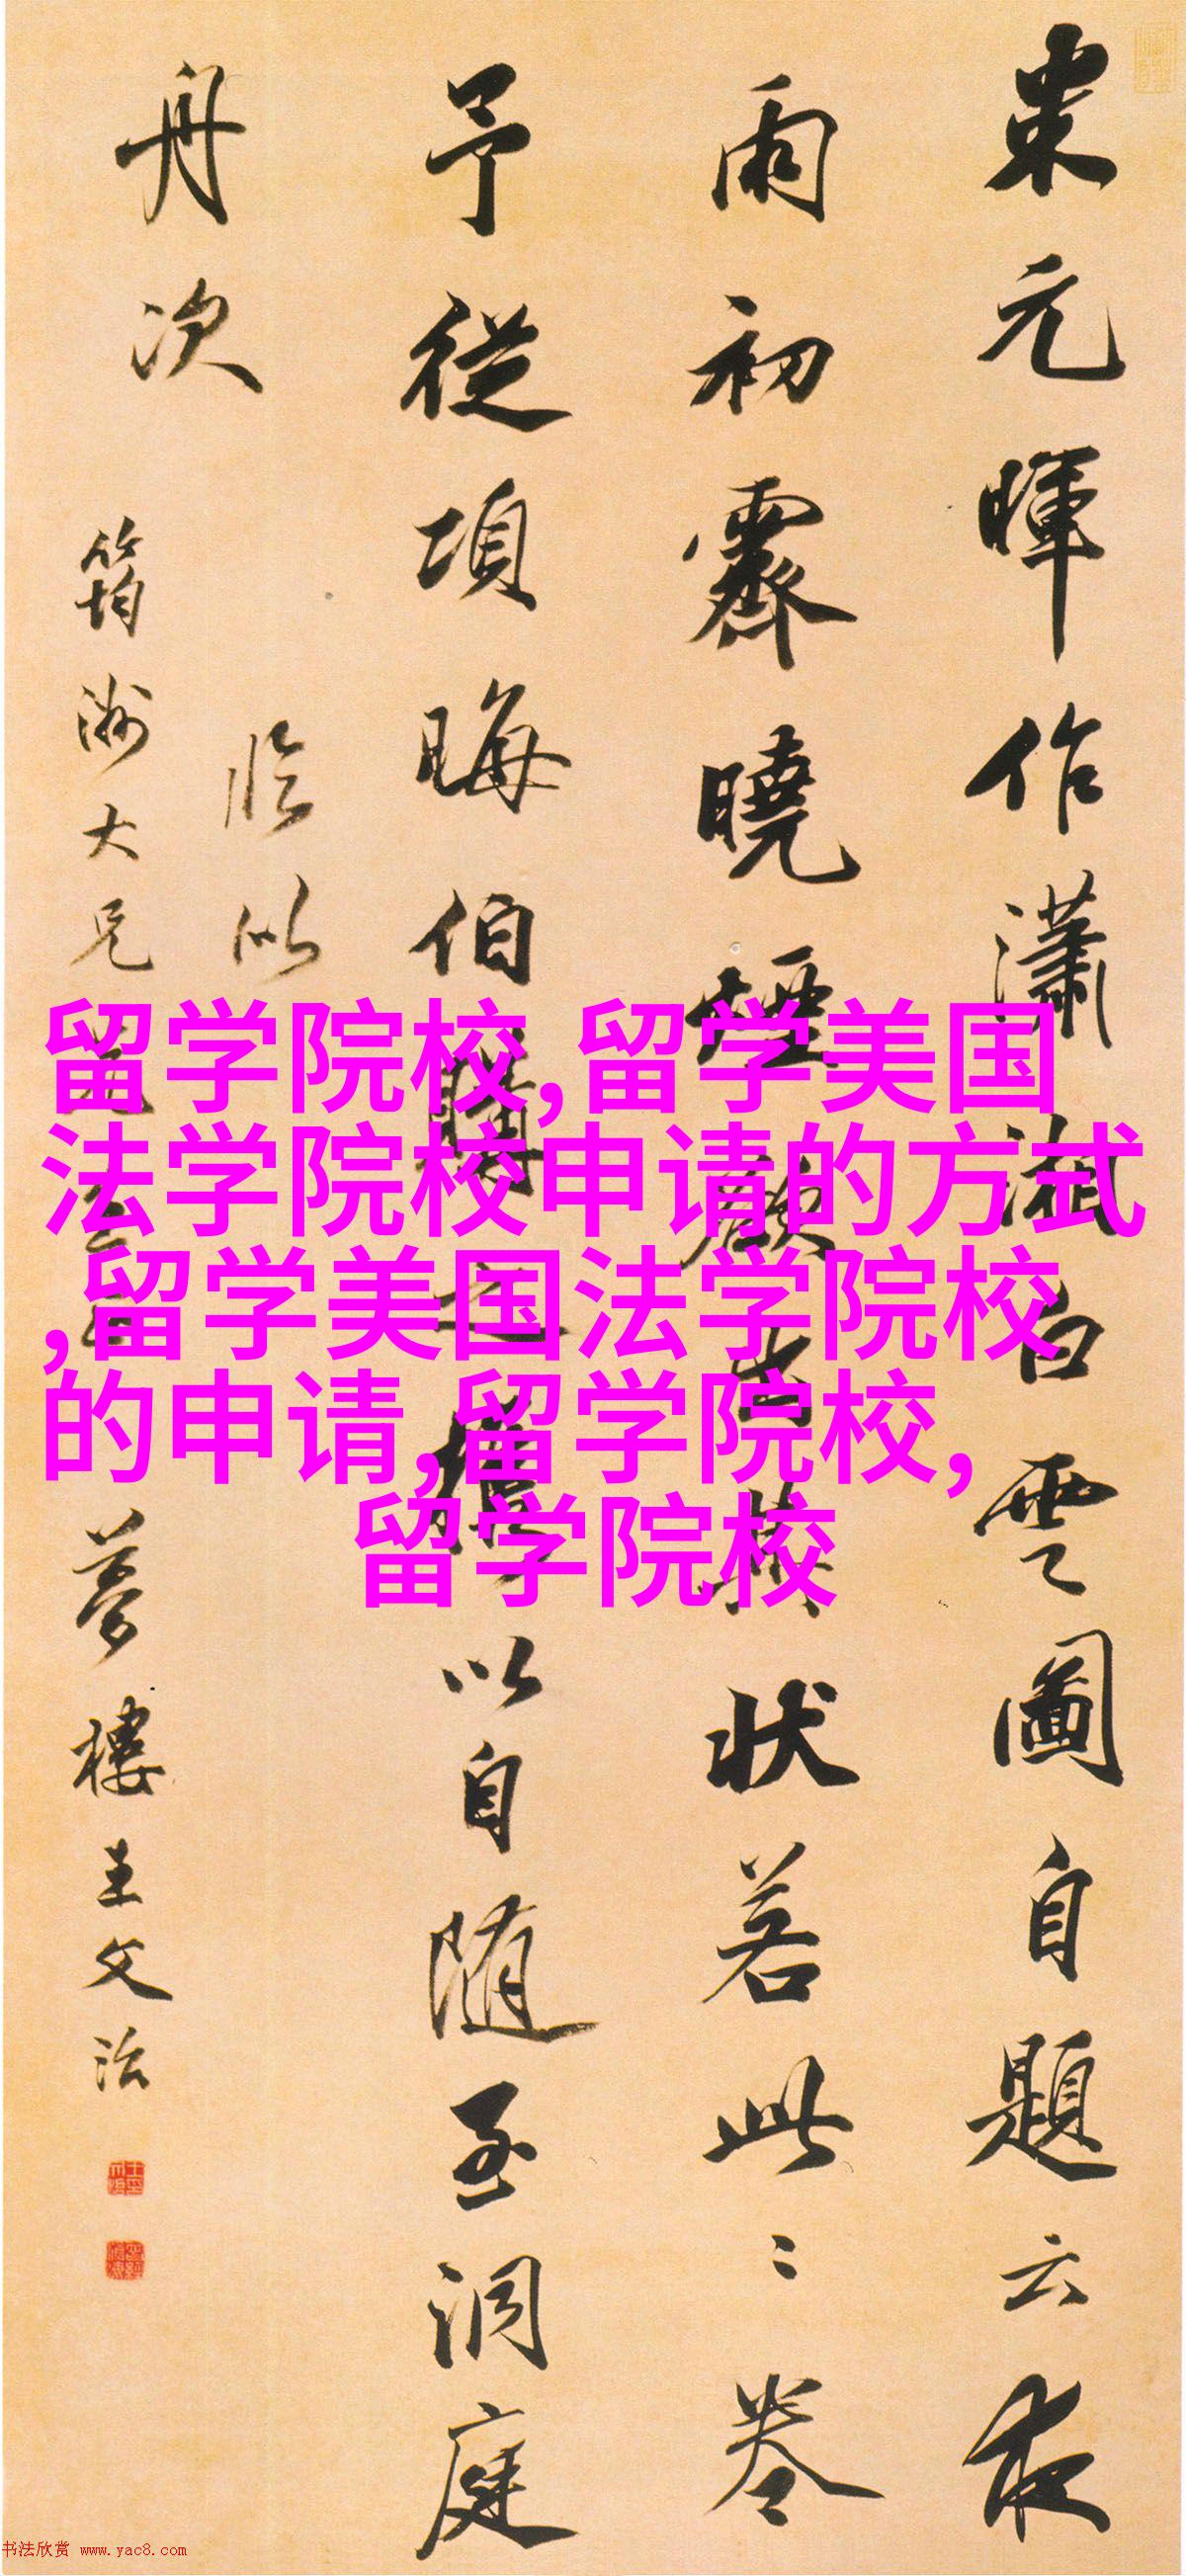 米元暉作瀟湘白雲圖自題云夜
雨初霽曉煙欲出其狀若此此卷
予從項晦伯購之攜以自随至洞庭
舟次
臨以
筠洲大兄
夢樓王文治
留学院校,留学美国
法学院校申请的方式
,留学美国法学院校
的申请,留学院校,
留学院校
书法欣赏 www.yac8.com